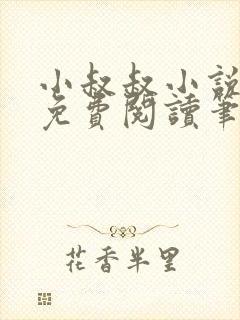 小叔叔小說
免費閱讀筆
花香半里